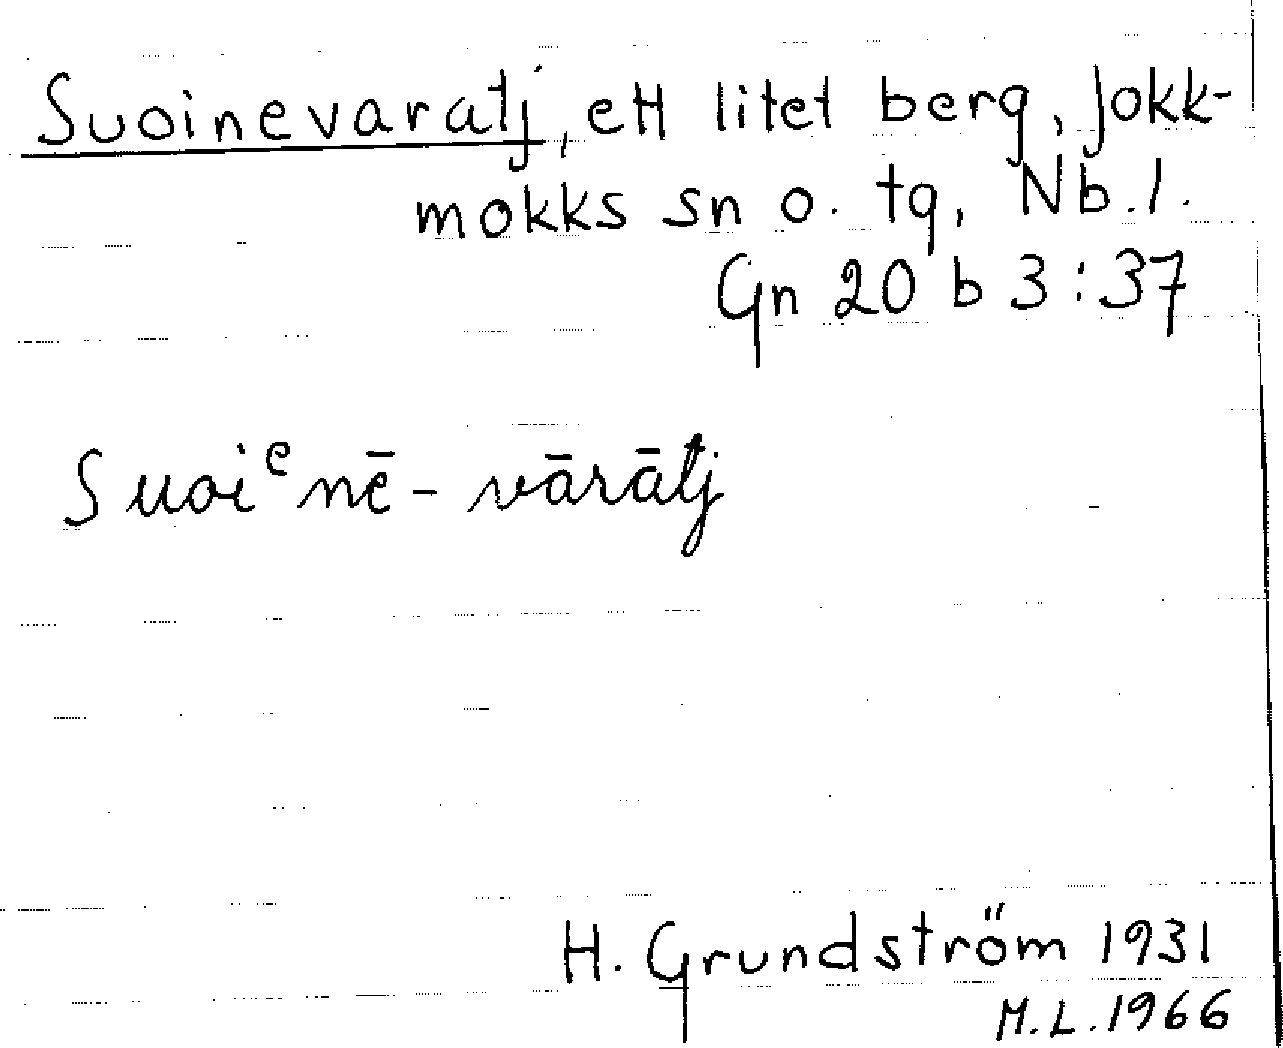 Suoinevaratj, ett litet berg, Jokk-
mokks sn o. tg, Nb.l.
Gn 20 b 3:37
Suoiᵉnē-vārātj
H. Grundström 1931
M.L.1966